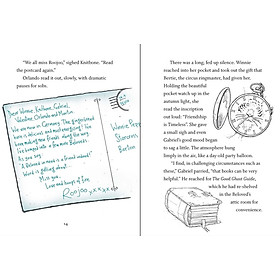 "We all miss Roojoo," sighed Knitbone. "Read
the postcard again."
Orlando read it out, slowly, with dramatic
pauses for sobs.
Dear Winnie, Knitbone, Gabriel,
Valentine, Orlando and Martin,
We are now in Germany. The gingerbread
here is delicious and most energising! We
love making new friends along the way.
I've bumped into a few more Beloveds.
As you say
'A Beloved in need is a friend indeed!'
Word is getting about...
Miss you,
Love and hugs of
Roojoo xxxxx
Winnie Pepper
Starcross
Bartonshire
14
There was a long, fed up silence. Winnie
reached into her pocket and took out the gift that
Bertie, the circus ringmaster, had given her.
Holding the beautiful
pocket watch up in the
autumn light, she
read the inscription
out loud: "Friendship
is Timeless". She gave
a small sigh and even
Gabriel's good mood began
to sag a little. The atmosphere hung
limply in the air, like a day-old party balloon.
"I find in challenging circumstances such as
these," Gabriel parried, "that books can be very
helpful." He reached for The Good Ghost Guide,
which he had re-shelved
in the Beloved's
attic room for
convenience.
15